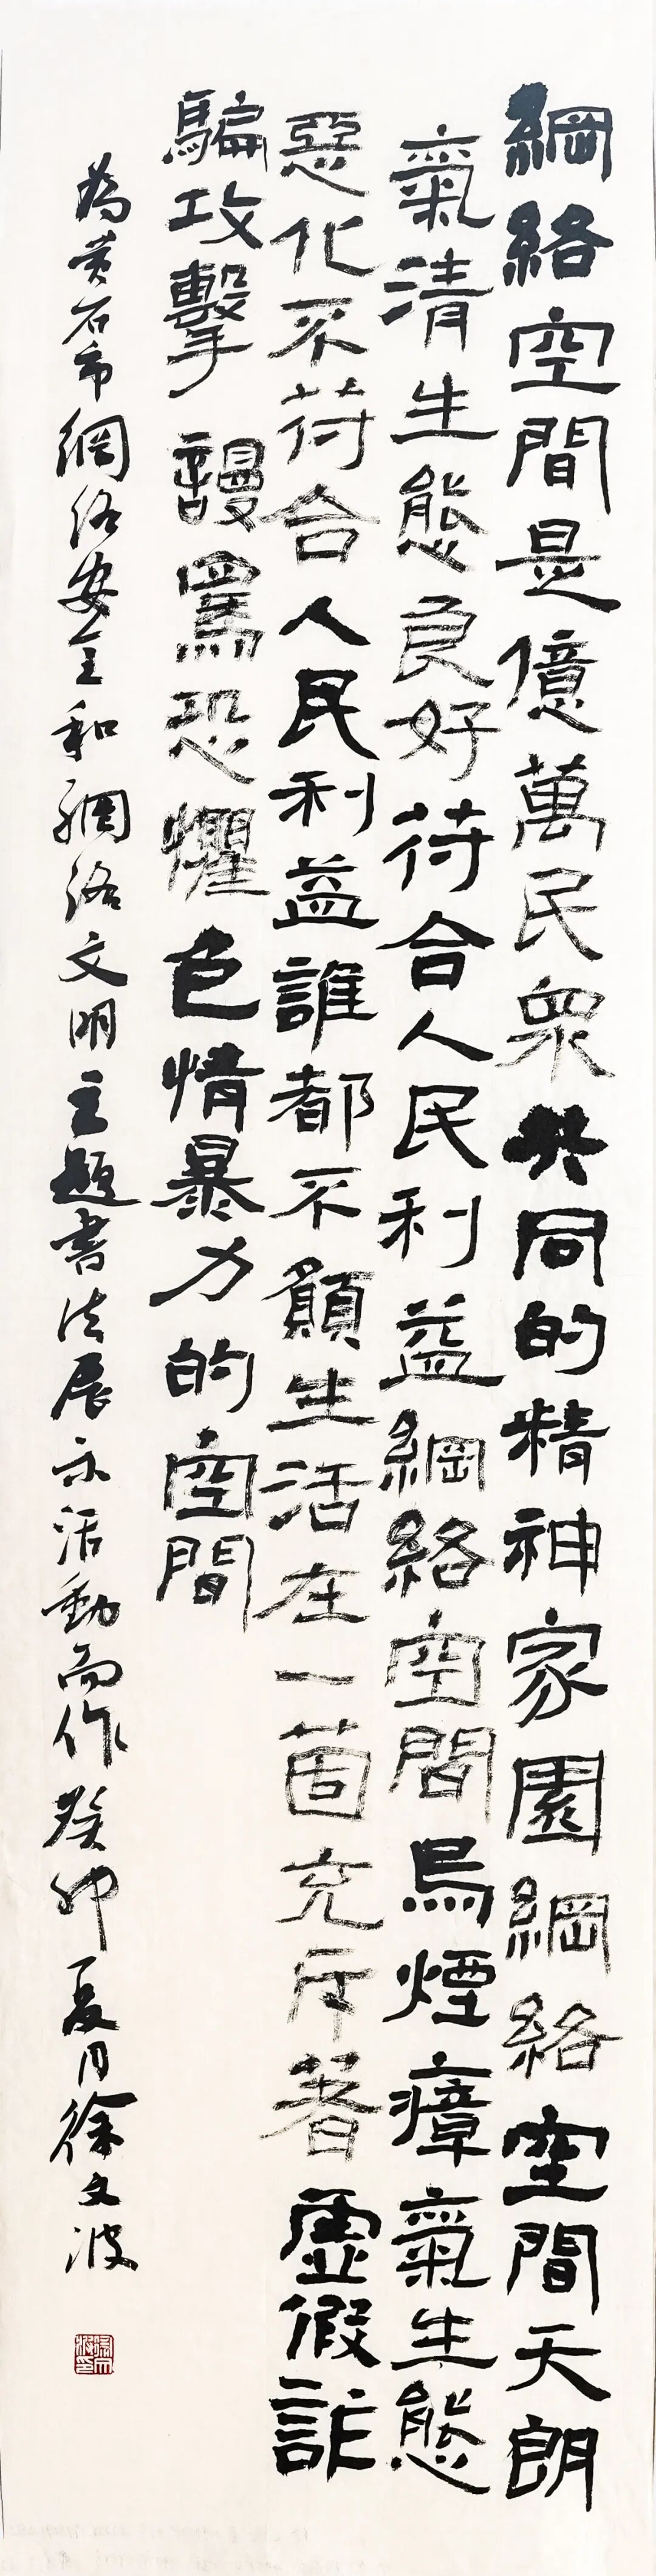 網絡空間是億萬民衆共同的精神家園網絡空間天朗
氣清生態良好符合人民利益網絡空間烏煙瘴氣生態
惡化不符合人民利益誰都不願生活在一箇充斥著虛假詐
騙攻擊謾駡恐懼色情暴力的空間
為黄石市網络安全和網络文明主题書法展示活動而作癸卯夏月徐文波